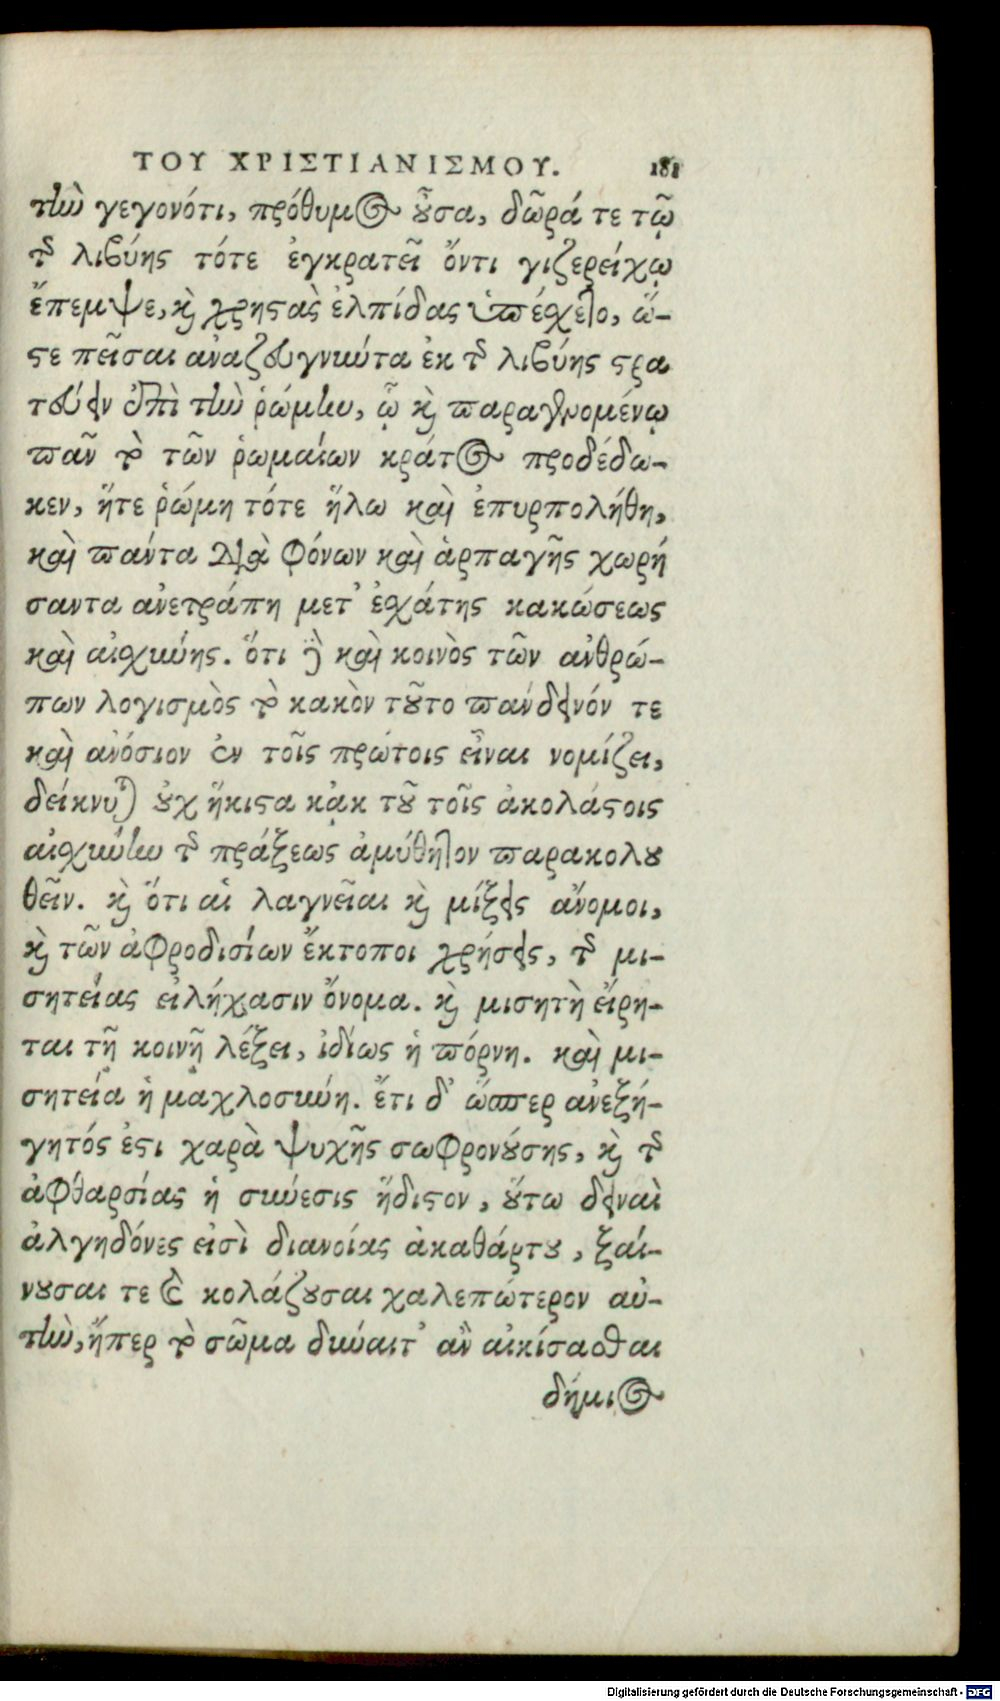 ΤΟΥ ΧΡΙΣΤΙΑΝΙΣΜΟΥ. 181
τὴν γεγονότι, πρόθυμος οὖσα, δῶρά τε τῷ
τῆς λιβύης τότε ἐγκρατεῖ ὄντι γιζερείχῳ
ἔπεμψε, καὶ χρηστὰς ἐλπίδας ὑπέσχετο, ὥ-
στε πεῖσαι ἀναζευγνύντα ἐκ τῆς λιβύης στρα
τεύειν ἐπὶ τὴν ῥώμην, ᾧ καὶ παραγενομένῳ
πᾶν τὸ τῶν ῥωμαίων κράτος προδέδω-
κεν, ἥτε ῥώμη τότε ἥλω καὶ ἐπυρπολήθη,
καὶ πάντα διὰ φόνων καὶ ἁρπαγῆς χωρή
σαντα ἀνετράπη μετ' ἐσχάτης κακώσεως
καὶ αἰσχύνης. ὅτι δὲ καὶ κοινὸς τῶν ἀνθρώ-
πων λογισμὸς τὸ κακὸν τοῦτο πάνδεινόν τε
καὶ ἀνόσιον ἐν τοῖς πρώτοις εἶναι νομίζει,
δείκνυται οὐχ ἥκιστα κᾀκ τοῦ τοῖς ἀκολάστοις
αἰσχύνην τῆς πράξεως ἀμύθητον παρακολου
θεῖν. καὶ ὅτι αἱ λαγνεῖαι καὶ μίξεις ἄνομοι,
καὶ τῶν ἀφροδισίων ἔκτοποι χρήσεις, τῆς μι-
σητείας εἰλήχασιν ὄνομα. καὶ μισητὴ εἴρη-
ται τῇ κοινῇ λέξει, ἰδίως ἡ πόρνη. καὶ μι-
σητεία ἡ μαχλοσύνη. ἔτι δ' ὥσπερ ἀνεξή-
γητός ἐστι χαρὰ ψυχῆς σωφρονούσης, καὶ τῆς
ἀφθαρσίας ἡ σύνεσις ἥδιστον, οὕτω δειναὶ
ἀλγηδόνες εἰσὶ διανοίας ἀκαθάρτου, ξαί-
νουσαι τε καὶ κολάζουσαι χαλεπώτερον αὐ-
τὴν, ἤπερ τὸ σῶμα δύναιτ' ἂν αἰκίσασθαι
δήμιος
Digitalisierung gefördert durch die Deutsche Forschungsgemeinschaft - DFG